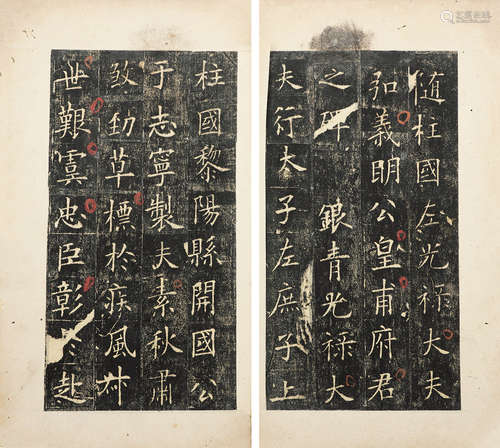 随柱國左光禄大夫
弘義明公皇甫府君
之碑 銀青光禄大
夫行大子左庶子上
柱國黎陽縣開國公
于志寧製夫素秋肅
煞勁草標於疾風叔
世艱虞忠臣彰於赴